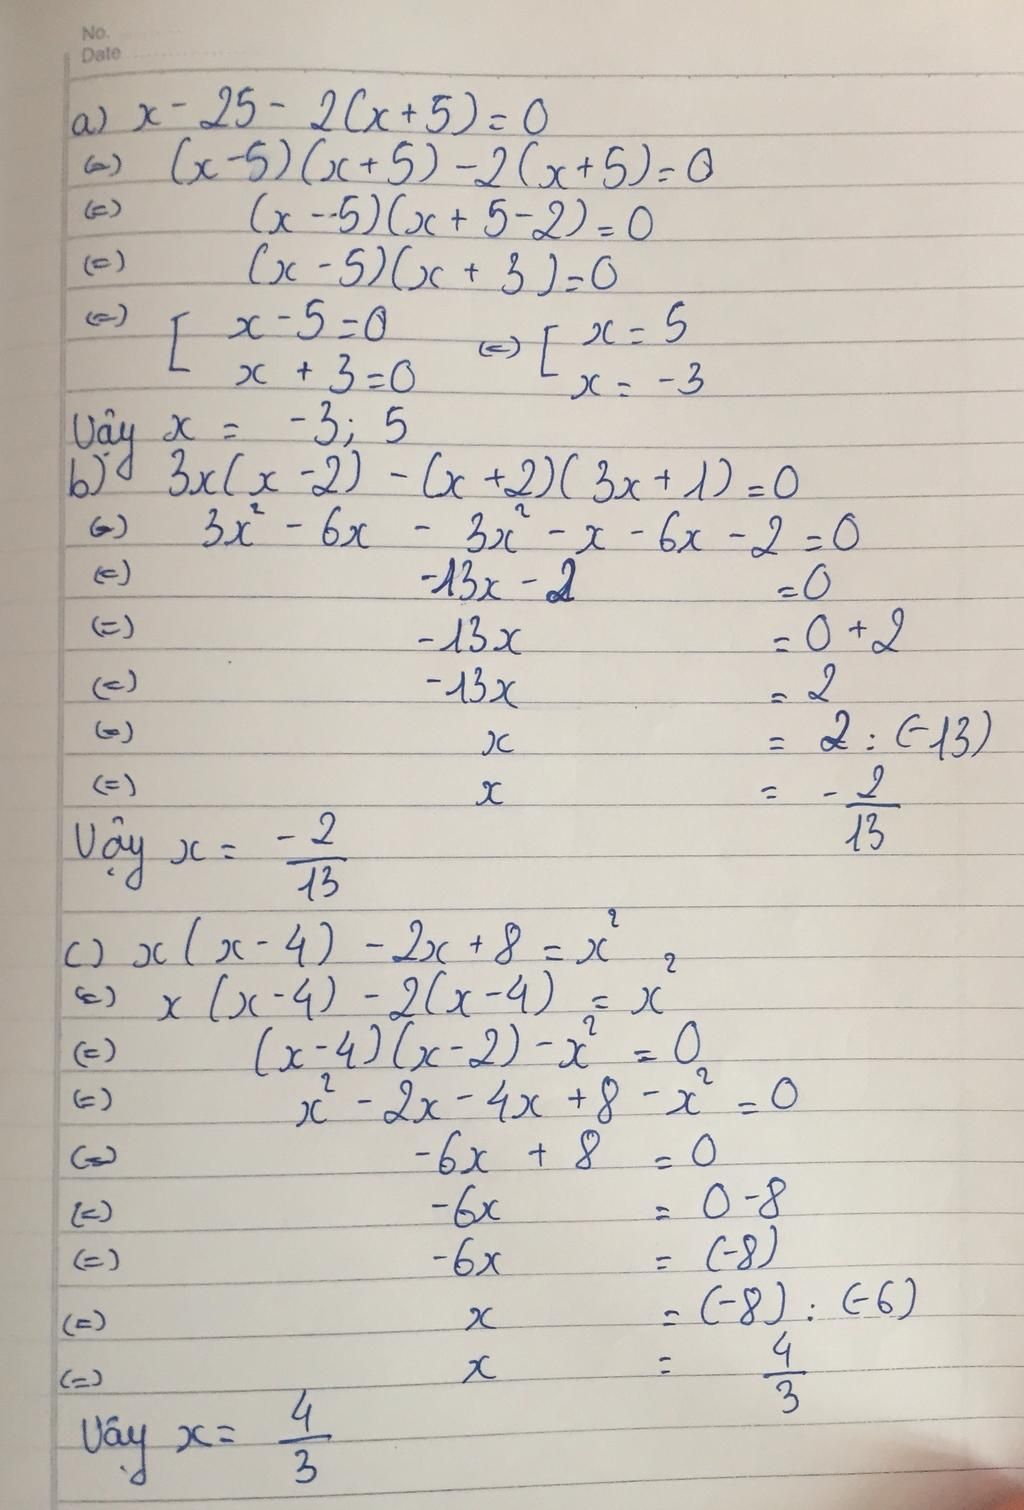 No.
Date
a) x - 25 - 2(x+5) = 0
(=) (x-5)(x+5) - 2(x+5) = 0
(=) (x--5)(x+5-2) = 0
(=) (x-5)(x+3) = 0
(=) [ x-5=0 (=) [ x = 5
x + 3 = 0 x = -3
Vậy x = -3; 5
b) 3x(x-2) - (x+2)(3x+1) = 0
(=) 3x² - 6x - 3x² - x - 6x - 2 = 0
(=) -13x - 2 = 0
(=) -13x = 0 + 2
(=) -13x = 2
(=) x = 2 : (-13)
(=) x = -2/13
Vậy x = -2/13
c) x(x-4) - 2x + 8 = x²
(=) x(x-4) - 2(x-4) = x²
(=) (x-4)(x-2) - x² = 0
(=) x² - 2x - 4x + 8 - x² = 0
(=) -6x + 8 = 0
(=) -6x = 0 - 8
(=) -6x = (-8)
(=) x = (-8) : (-6)
(=) x = 4/3
Vậy x = 4/3